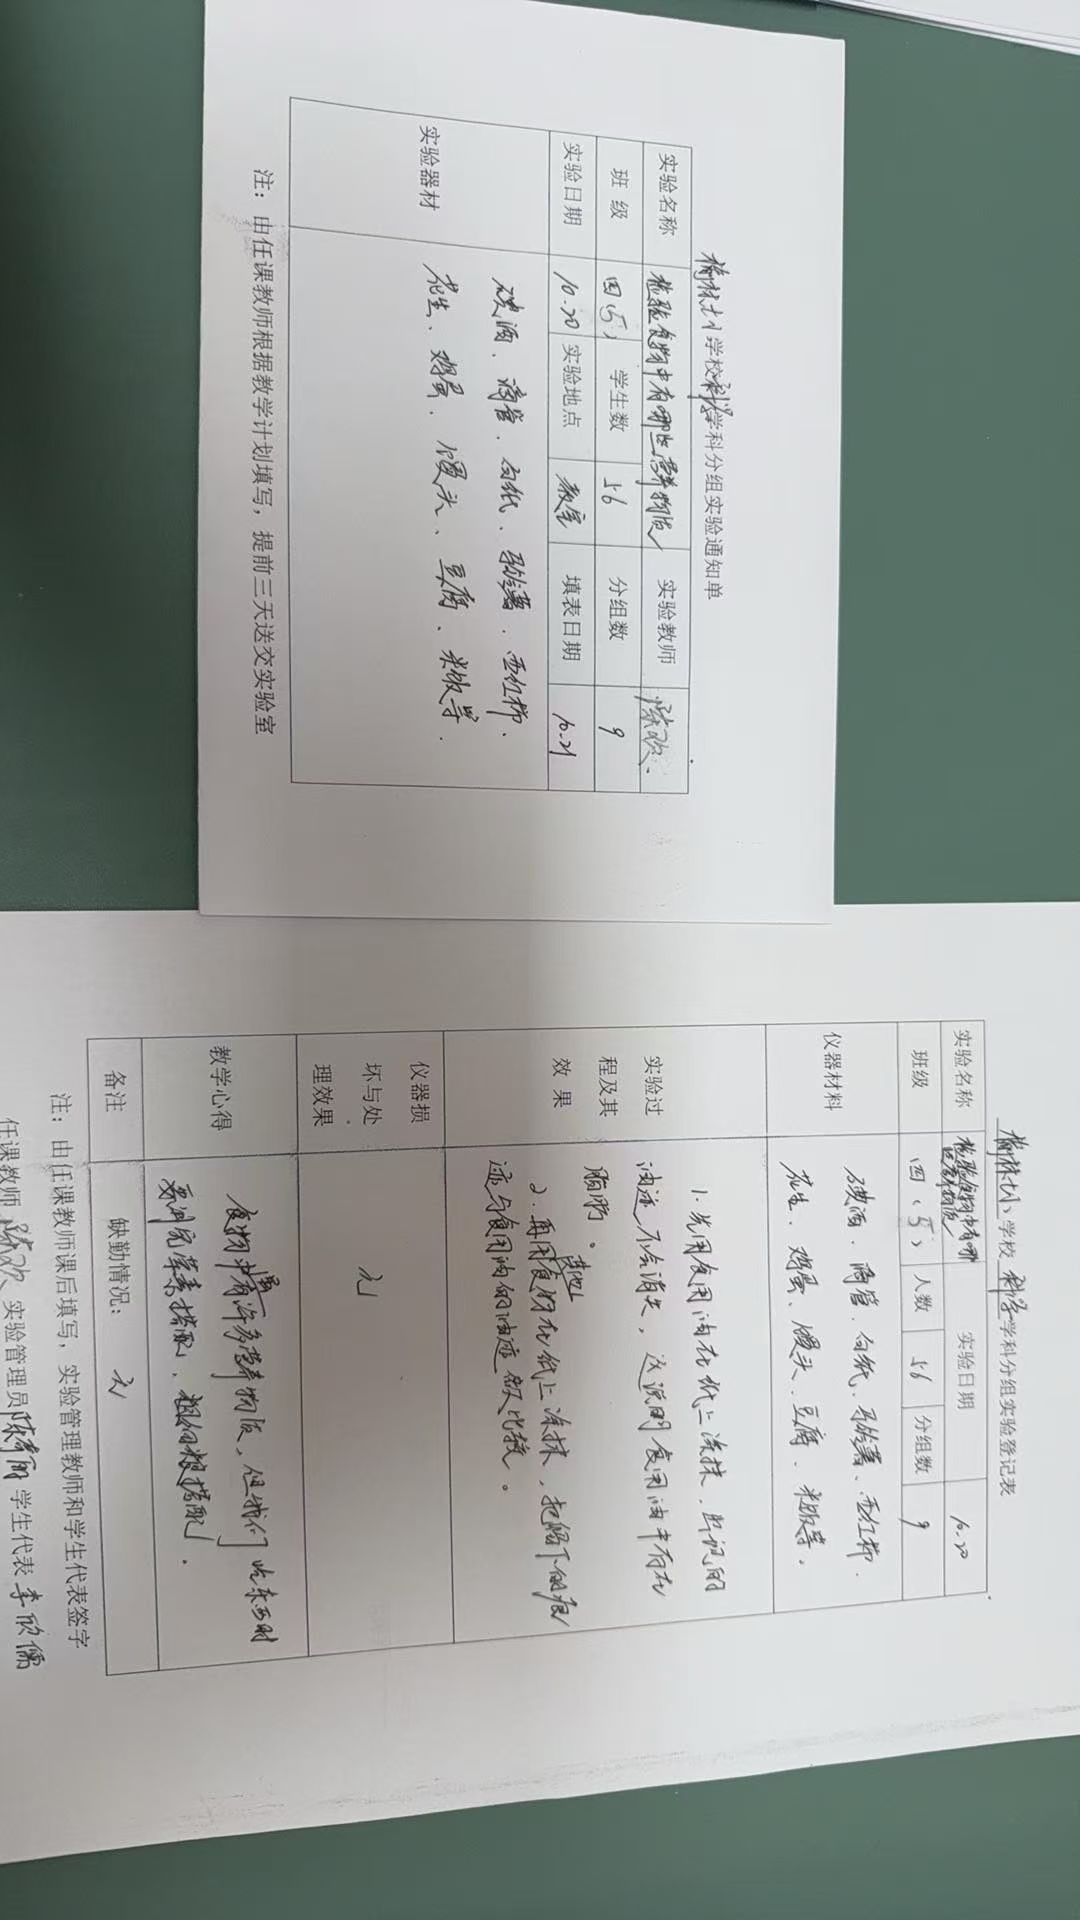 榆林七小学校科学学科分组实验通知单
实验名称 检验食物中有哪些营养物质 实验教师 陈欢
班 级 四(5) 学生数 56 分组数 9
实验日期 10.20 实验地点 教室 填表日期 10.21
实验器材
碘酒、滴管、白纸、马铃薯、西红柿、
花生、鸡蛋、馒头、豆腐、米饭等.
注：由任课教师根据教学计划填写，提前三天送交实验室
榆林七小学校 科学学科分组实验登记表
实验名称 检验食物中有哪 实验日期 10.20
些营养物质
班级 四(5) 人数 56 分组数 9
仪器材料
碘酒、滴管、白纸、马铃薯、西红柿.
花生、鸡蛋、馒头、豆腐、米饭等.
实验过
程及其
效 果
1.先用食用油在纸上涂抹,出现的
油迹不会消失,这说明食用油中存在
脂肪。
2.再用其他食物在纸上涂抹,把留下的痕
迹与食用油的油迹做比较。
仪器损
坏与处
理效果
无
教学心得
食物中有许多营养物质,但我们吃东西时
要训荤素搭配,粗细粮搭配.
备注 缺勤情况： 无
注：由任课教师课后填写，实验管理教师和学生代表签字
任课教师 陈欢 实验管理员 陈秀丽 学生代表 李欣儒